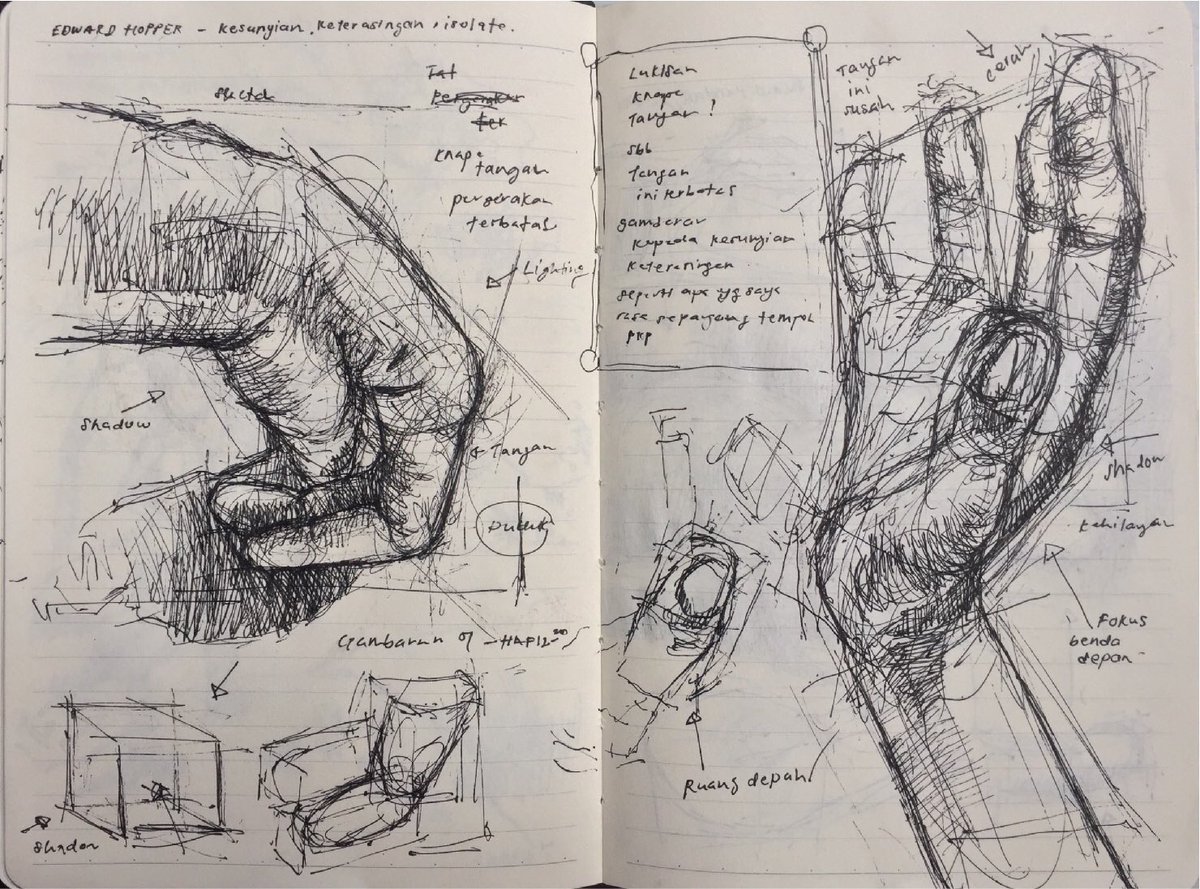 EDWARD HOPPER - Kesunyian, Keterasingan, isolate.
Knape
tangan
pergerakan
terbatas
Lighting
Shadow
Tangan
Duduk
Gambaran 07 - HAFIZ
Shadow
Lukisan
Knape
Tangan?
sbb
Tangan
ini terbatas
gambaran
kepada kesunyian
keterasingan
seperti apa yg saya
rasa sepanjang tempoh
PKP
Tangan
ini
susah
cerah
Shadow
Kehilangan
Fokus
benda
depan
Ruang depan